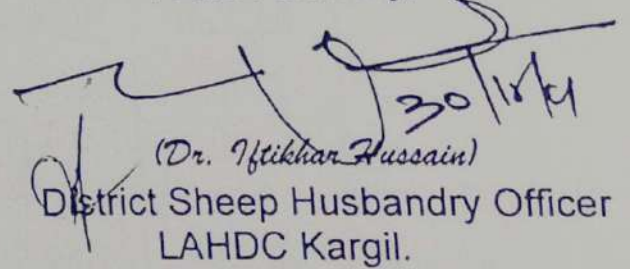 (Dr. Iftikhar Hussain)
District Sheep Husbandry Officer
LAHDC Kargil.